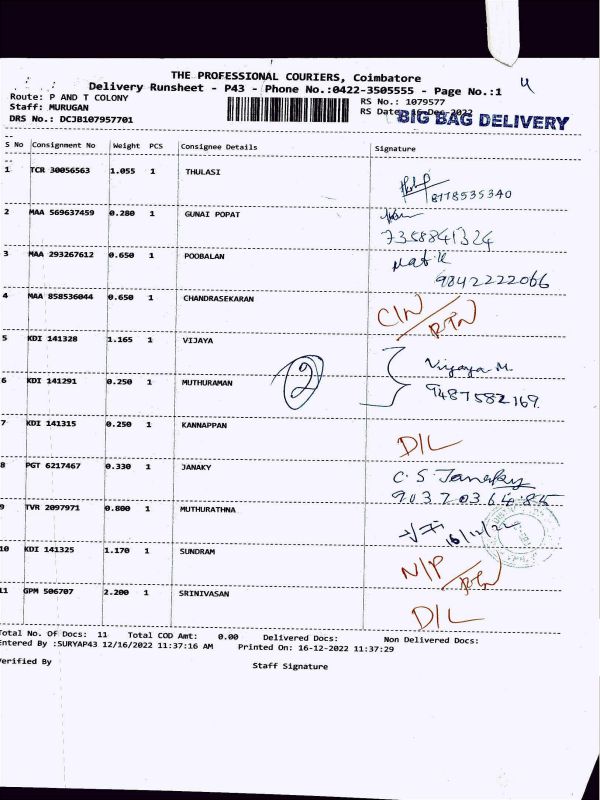 4
THE PROFESSIONAL COURIERS, Coimbatore
Delivery Runsheet - P43 - Phone No.:0422-3505555 - Page No.:1
Route: P AND T COLONY
RS No.: 1079577
Staff: MURUGAN
RS Date: 16-Dec-2022
DRS No.: DCJB107957701
BIG BAG DELIVERY
S No Consignment No Weight PCS Consignee Details Signature
1 TCR 30056563 1.055 1 THULASI
8778535340
2 MAA 569637459 0.280 1 GUNAI POPAT
7358841324
3 MAA 293267612 0.650 1 POOBALAN
9842222066
4 MAA 858536044 0.650 1 CHANDRASEKARAN
C/N / RTN
5 KDI 141328 1.165 1 VIJAYA
Vijaya M.
6 KDI 141291 0.250 1 MUTHURAMAN
2
9487582169.
7 KDI 141315 0.250 1 KANNAPPAN
D/L
8 PGT 6217467 0.330 1 JANAKY
C. S. Janaky
9037036485
9 TVR 2097971 0.800 1 MUTHURATHNA
16/12/22
10 KDI 141325 1.170 1 SUNDRAM
N/P / RTN
11 GPM 506707 2.200 1 SRINIVASAN
D/L
Total No. Of Docs: 11 Total COD Amt: 0.00 Delivered Docs: Non Delivered Docs:
Entered By :SURYAP43 12/16/2022 11:37:16 AM Printed On: 16-12-2022 11:37:29
Verified By Staff Signature